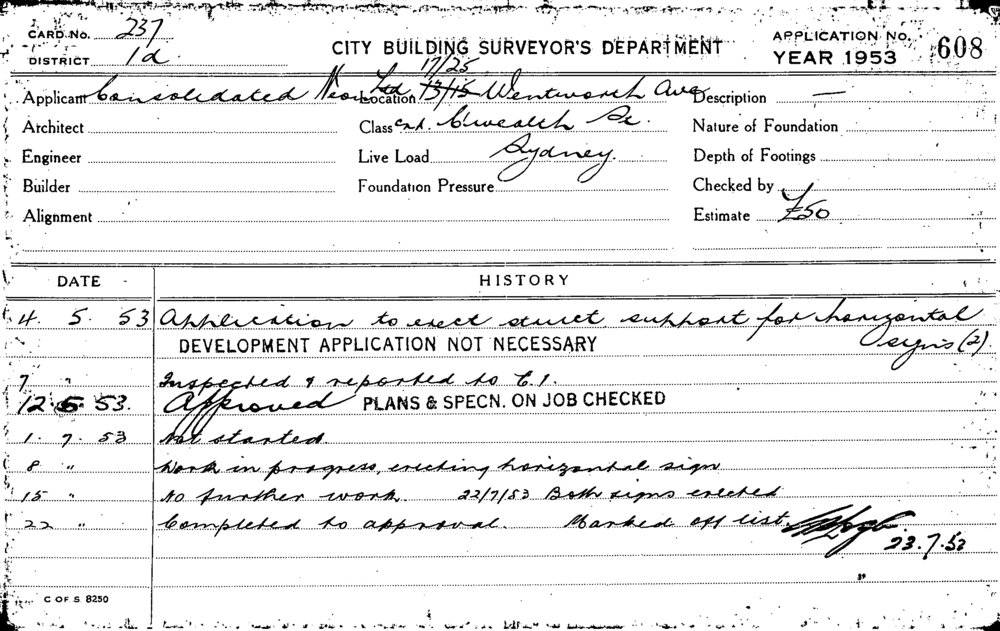 CARD No. 237
CITY BUILDING SURVEYOR'S DEPARTMENT
APPLICATION No. 608
DISTRICT 1d
YEAR 1953
17/25
Applicant Consolidated Neon Ltd Location 13/15 Wentworth Ave Description —
Architect Class cnr. C'wealth St. Nature of Foundation
Engineer Live Load Sydney. Depth of Footings
Builder Foundation Pressure Checked by
Alignment Estimate £50
DATE HISTORY
4. 5. 53 Application to erect struct. support for horizontal
signs (2).
DEVELOPMENT APPLICATION NOT NECESSARY
7 " Inspected & reported to C.I.
12. 5. 53. Approved PLANS & SPECN. ON JOB CHECKED
1. 7. 53 Not started.
8 " Work in progress, erecting horizontal sign
15 " No further work. 22/7/53 Both signs erected
22 " Completed to approval. Marked off list
23.7.53
"
C OF S 8250